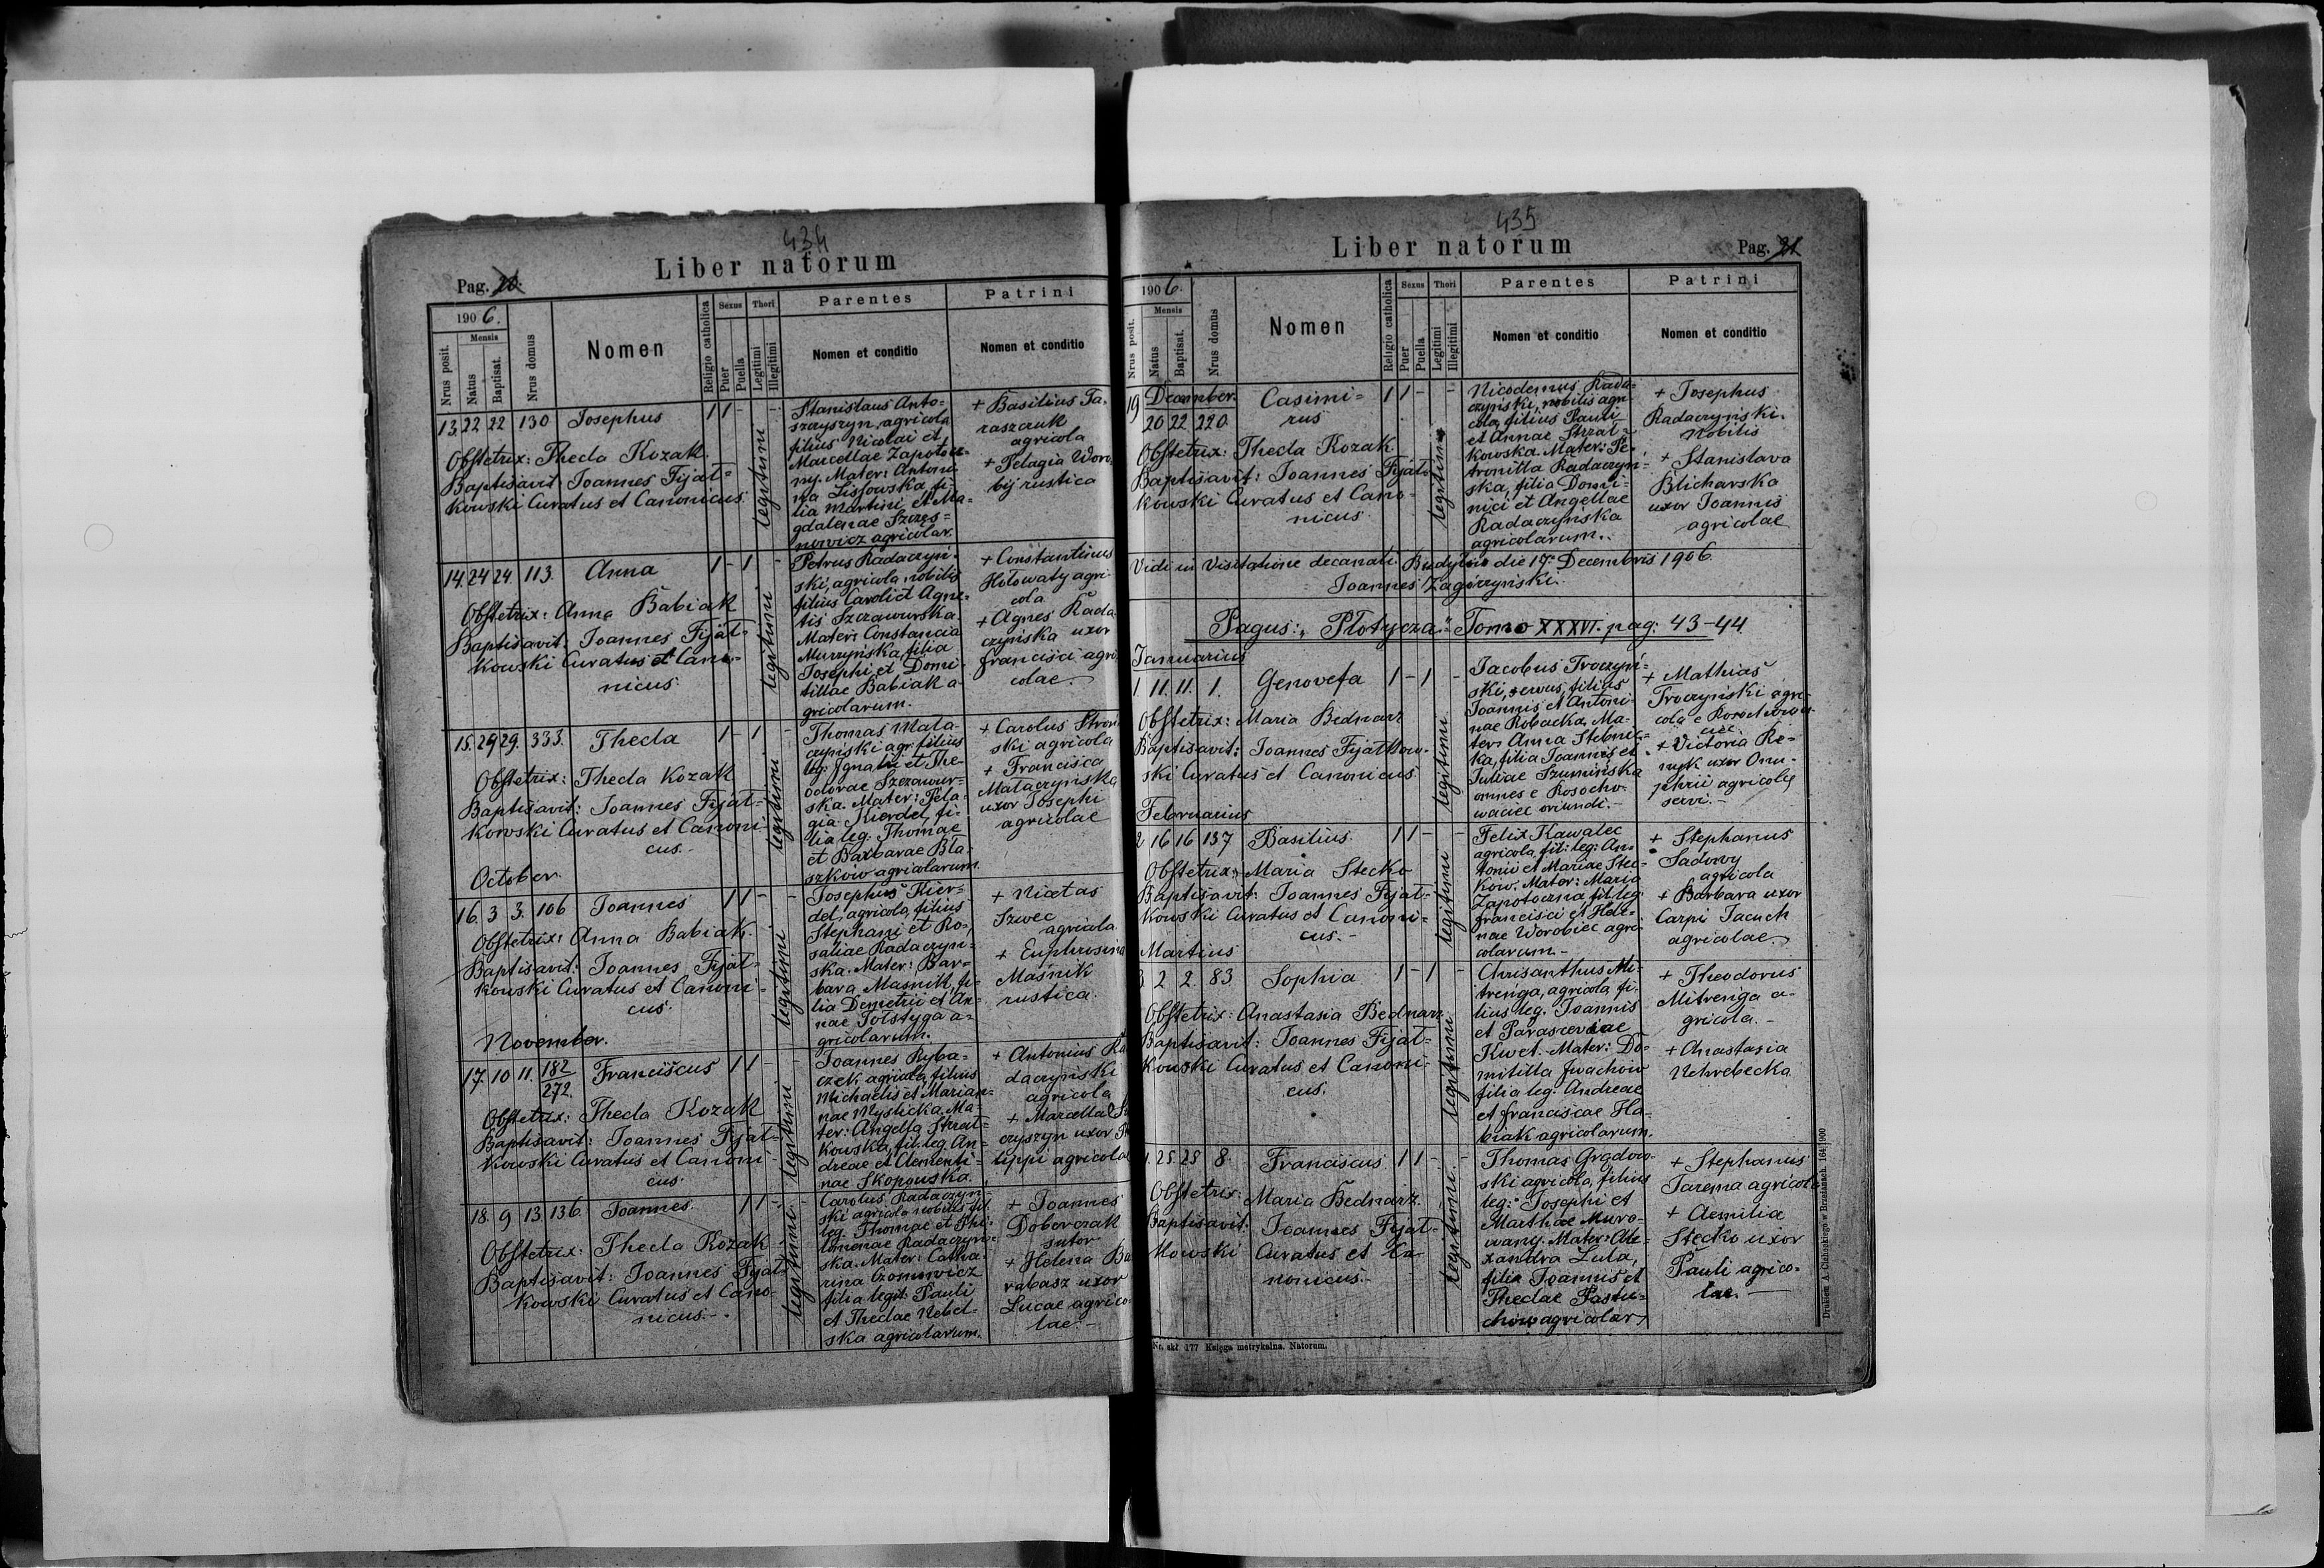 434
Liber natorum
Pag. 20.
1906.
Mensis
Nrus posit.
Natus
Baptisat.
Nrus domus
Nomen
Religio catholica
Sexus
Puer
Puella
Thori
Legitimi
Illegitimi
Parentes
Nomen et conditio
Patrini
Nomen et conditio
13. 22 22 130 Josephus 1 1 - -
Obstetrix: Thecla Kozak.
Baptisavit: Joannes Fijał=
kowski Curatus et Canonicus.
legitimi
Stanislaus Anto=
szczyszyn, agricola
filius Nicolai et
Marcellae Zapotocz=
ny. Mater: Antoni
na Lissowska, fi=
lia Martini et Ma=
gdalenae Szczes=
nowicz agricolar.
+ Basilius Ta=
raszczuk
agricola
+ Pelagia Woro
bij rustica
14. 24 24. 113. Anna 1 - 1 -
Obstetrix: Anna Babiak
Baptisavit: Joannes Fijał=
kowski Curatus et Cano=
nicus.
legitimi
Petrus Radaczyń=
ski, agricola nobilis
filius Caroli et Agne=
tis Szczawurska.
Mater: Constancia
Murzyńska, filia
Josephi et Domi=
tillae Babiak a=
gricolarum.
+ Constantinus
Hołowaty agri=
cola
+ Agnes Rada
czyńska uxor
Francisci agri
colae.
15. 29 29. 333. Thecla 1 - 1 -
Obstetrix: Thecla Kozak
Baptisavit: Joannes Fijał=
kowski Curatus et Canoni=
cus.-
legitimi
Thomas Mata=
czyński agr: filius
leg: Ignatii et The=
odorae Szczawur=
ska. Mater: Pela=
gia Kierdel, fi=
lia leg: Thomae
et Barbarae Bła=
szków agricolarum.
+ Carolus Stron
ski agricola
+ Francisca
Mataczyńska
uxor Josephi
agricolae
October.
16. 3 3. 106 Joannes 1 1 - -
Obstetrix: Anna Babiak.
Baptisavit: Joannes Fijał=
kowski Curatus et Canoni=
cus.
legitimi
Josephus Kier=
del, agricola, filius
Stephani et Ro=
saliae Radaczyń=
ska. Mater: Bar=
bara Masnik, fi=
lia Demetrii et An=
nae Tołstyga a=
gricolarum.
+ Nicetas
Szwec
agricola
+ Euphrosina
Maśnik
rustica.
November.
17. 10 11. 182/272. Franciscus 1 1 - -
Obstetrix: Thecla Kozak
Baptisavit: Joannes Fijał=
kowski Curatus et Canoni=
cus.
legitimi
Joannes Ryba=
czek agricola, filius
Michaelis et Marian=
nae Mysticka. Ma=
ter: Angella Strzał=
kowska, fil: leg An=
dreae et Clementi=
nae Skopouska.
+ Antonius Ra
daczyński
agricola
+ Marcella
czyszyn uxor
lippi agricolae
18. 9 13. 136. Joannes. 1 1 - -
Obstetrix: Thecla Kozak
Baptisavit: Joannes Fijał=
kowski Curatus et Cano=
nicus.-
legitimi
Carolus Radaczyń=
ski agricola nobilis fil
leg. Thomae et Phi=
lomenae Radaczyń=
ska. Mater: Catha=
rina
filia legit: Pauli
et Theclae Nebel=
ska agricolarum.
+ Joannes
Doberczak
sutor
+ Helena Ba
rabasz uxor
Lucae agrico=
lae.-
435
Liber natorum
Pag. 21
1906.
Mensis
Nrus posit.
Natus
Baptisat.
Nrus domus
Nomen
Religio catholica
Sexus
Puer
Puella
Thori
Legitimi
Illegitimi
Parentes
Nomen et conditio
Patrini
Nomen et conditio
December.
19 20 22 220. Casimi=
rus 1 1 - -
Obstetrix: Thecla Kozak
Baptisavit: Joannes Fijał=
kowski Curatus et Cano=
nicus.
legitimi
Nicodemus Rada=
czyński, nobilis agri
cola, filius Pauli
et Annae Strzał=
kowska. Mater: Pe=
tronilla Radaczyń=
ska, filia Domi=
nici et Angellae
Radaczyńska
agricolarum.
+ Josephus
Radaczyński.
Nobilis
+ Stanislava
Blicharska
uxor Joannis
agricolae
Vidi in Visitatione decanali. Budyłów die 17. Decembris 1906.
Joannes Zagórzyński.
Pagus: "Płotycza" Tomo XXXVI. pag: 43-44.
Januarius
1. 11. 11. 1. Genovefa 1 - 1 -
Obstetrix: Maria Bednarz
Baptisavit: Joannes Fijałkow=
ski Curatus et Canonicus.
legitimi
Jacobus Troczyń=
ski, servus, filius
Joannis et Antoni=
nae Robacka. Ma=
ter: Anna Stebnic=
ka, filia Joannis et
Juliae Szumińska
omnes e Rosocho
waciec oriundi.-
+ Mathias
Troczyński agri=
cola e Rosochowa
ciec.
+ Victoria Re=
nyk uxor Onu=
phrii agricolae
servi.-
Februarius
2 16 16 137 Basilius. 1 1 - -
Obstetrix: Maria Stecko
Baptisavit: Joannes Fijał=
kowski Curatus et Canoni=
cus.-
legitimi
Felix Kawalec
agricola, fil: leg: An=
tonii et Mariae Stec=
ków. Mater: Maria
Zapotoczna, fil. leg.
Francisci et Hele=
nae Worobiec agri=
colarum.-
+ Stephanus
Sadowy
agricola
+ Barbara uxor
Carpi Jacuch
agricolae.
Martius
3. 2 2. 83. Sophia 1 - 1 -
Obstetrix: Anastasia Bednarz
Baptisavit: Joannes Fijał=
kowski Curatus et Canoni=
cus.
legitimi
Chrisanthus Mi=
trenga, agricola, fi=
lius leg. Joannis
et Parasceviae
Kwet. Mater: Do=
mitilla Iwachów
filia leg. Andreae
et Franciscae Ha=
biak agricolarum.
+ Theodorus
Mitrenga a=
gricola.-
+ Anastasia
Nehrebecka
4. 25 25 8. Franciscus 1 1 - -
Obstetrix: Maria Bednarz.
Baptisavit: Joannes Fijał=
kowski Curatus et Ca=
nonicus.-
legitimi
Thomas Grądow=
ski agricola, filius
leg: Josephi et
Marthae Muro=
wany. Mater: Ale=
xandra Lula,
filia Joannis et
Theclae Pastu=
chów agricolar.
+ Stephanus
Jarema agricola
+ Aemilia
Stecko uxor
Pauli agrico=
lae.-
Nr. skł 177 Księga metrykalna. Natorum.